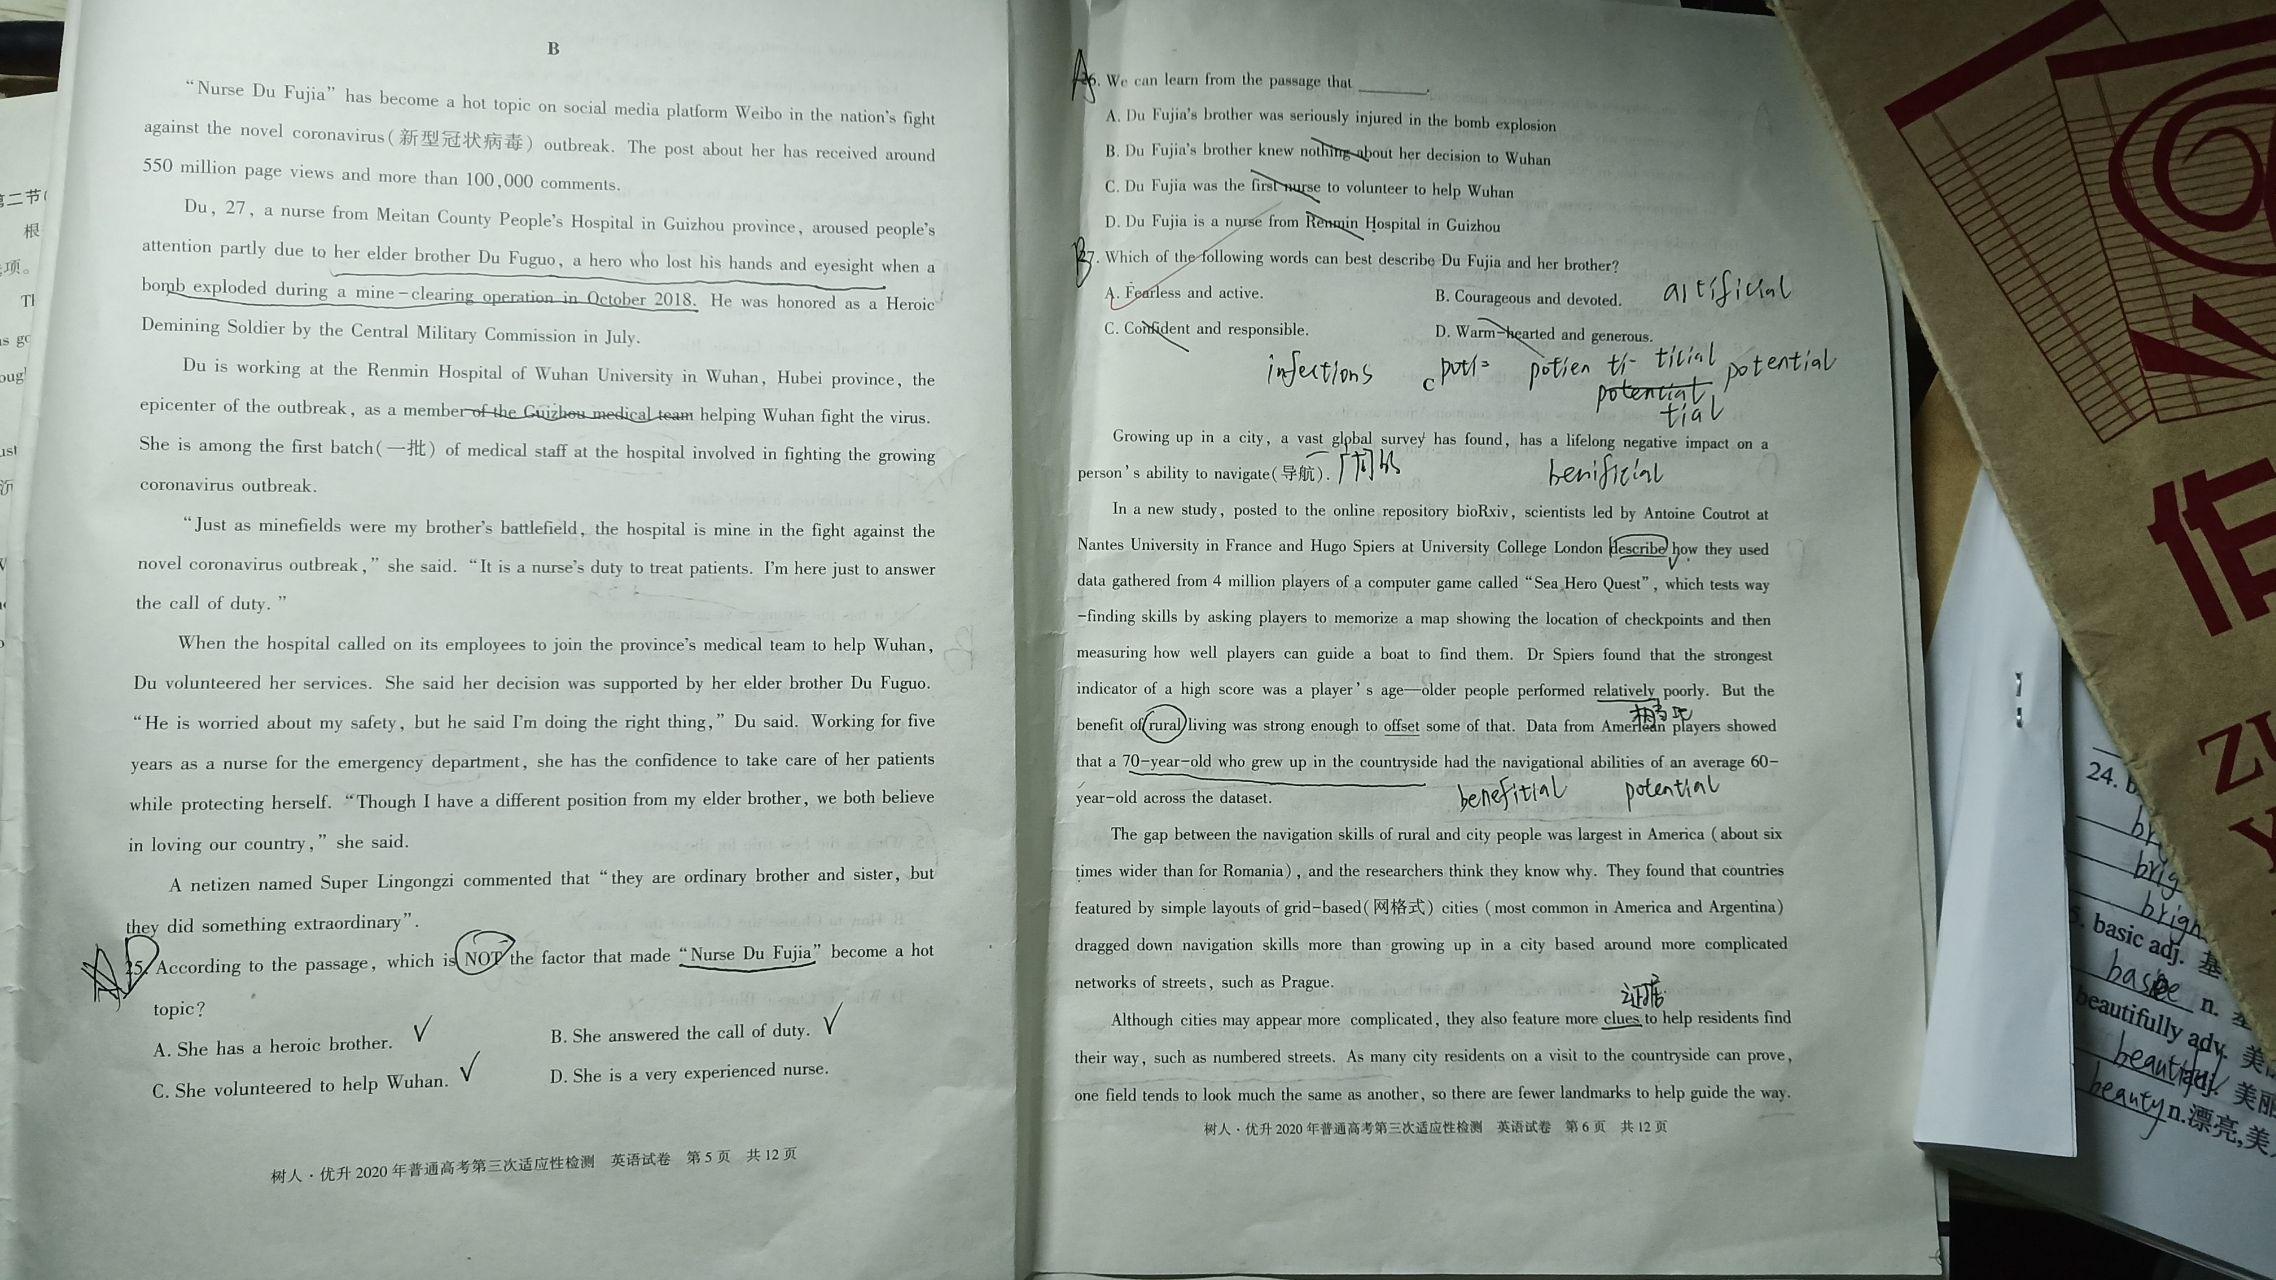 B
“Nurse Du Fujia” has become a hot topic on social media platform Weibo in the nation's fight
against the novel coronavirus(新型冠状病毒) outbreak. The post about her has received around
550 million page views and more than 100,000 comments.
Du, 27, a nurse from Meitan County People's Hospital in Guizhou province, aroused people's
attention partly due to her elder brother Du Fuguo, a hero who lost his hands and eyesight when a
bomb exploded during a mine-clearing operation in October 2018. He was honored as a Heroic
Demining Soldier by the Central Military Commission in July.
Du is working at the Renmin Hospital of Wuhan University in Wuhan, Hubei province, the
epicenter of the outbreak, as a member of the Guizhou medical team helping Wuhan fight the virus.
She is among the first batch(一批) of medical staff at the hospital involved in fighting the growing
coronavirus outbreak.
“Just as minefields were my brother's battlefield, the hospital is mine in the fight against the
novel coronavirus outbreak,” she said. “It is a nurse's duty to treat patients. I'm here just to answer
the call of duty.”
When the hospital called on its employees to join the province's medical team to help Wuhan,
Du volunteered her services. She said her decision was supported by her elder brother Du Fuguo.
“He is worried about my safety, but he said I'm doing the right thing,” Du said. Working for five
years as a nurse for the emergency department, she has the confidence to take care of her patients
while protecting herself. “Though I have a different position from my elder brother, we both believe
in loving our country,” she said.
A netizen named Super Lingongzi commented that “they are ordinary brother and sister, but
they did something extraordinary”.
D
25. According to the passage, which is NOT the factor that made “Nurse Du Fujia” become a hot
topic?
A. She has a heroic brother. ✓ B. She answered the call of duty. ✓
C. She volunteered to help Wuhan. ✓ D. She is a very experienced nurse.
树人·优升2020年普通高考第三次适应性检测 英语试卷 第5页 共12页
A
26. We can learn from the passage that ______.
A. Du Fujia's brother was seriously injured in the bomb explosion
B. Du Fujia's brother knew nothing about her decision to Wuhan
C. Du Fujia was the first nurse to volunteer to help Wuhan
D. Du Fujia is a nurse from Renmin Hospital in Guizhou
B
27. Which of the following words can best describe Du Fujia and her brother?
A. Fearless and active. B. Courageous and devoted. artificial
C. Confident and responsible. D. Warm-hearted and generous.
infections C potien ti- ticial potential
potential
tial
Growing up in a city, a vast global survey has found, has a lifelong negative impact on a
person's ability to navigate(导航). benificial
In a new study, posted to the online repository bioRxiv, scientists led by Antoine Coutrot at
Nantes University in France and Hugo Spiers at University College London describe how they used
data gathered from 4 million players of a computer game called “Sea Hero Quest”, which tests way
-finding skills by asking players to memorize a map showing the location of checkpoints and then
measuring how well players can guide a boat to find them. Dr Spiers found that the strongest
indicator of a high score was a player's age—older people performed relatively poorly. But the
相当地
benefit of rural living was strong enough to offset some of that. Data from American players showed
that a 70-year-old who grew up in the countryside had the navigational abilities of an average 60-
year-old across the dataset. benefitial potential
The gap between the navigation skills of rural and city people was largest in America (about six
times wider than for Romania), and the researchers think they know why. They found that countries
featured by simple layouts of grid-based(网格式) cities (most common in America and Argentina)
dragged down navigation skills more than growing up in a city based around more complicated
networks of streets, such as Prague.
证据
Although cities may appear more complicated, they also feature more clues to help residents find
their way, such as numbered streets. As many city residents on a visit to the countryside can prove,
one field tends to look much the same as another, so there are fewer landmarks to help guide the way.
树人·优升2020年普通高考第三次适应性检测 英语试卷 第6页 共12页
24.
basic adj. 基
n.
beautifully adv. 美
adj. 美丽
beauty n.漂亮,美